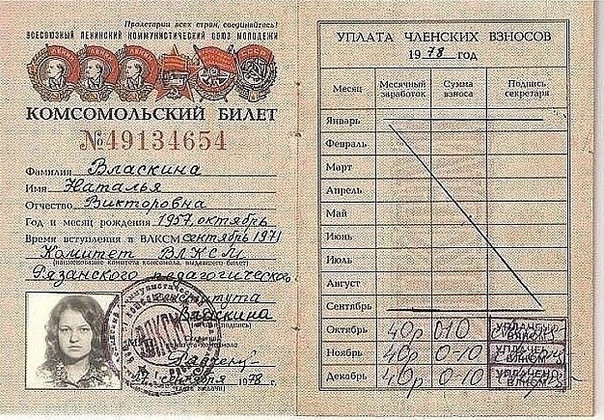 Пролетарии всех стран, соединяйтесь!
ВСЕСОЮЗНЫЙ ЛЕНИНСКИЙ КОММУНИСТИЧЕСКИЙ СОЮЗ МОЛОДЕЖИ
КОМСОМОЛЬСКИЙ БИЛЕТ
№49134654
Фамилия Власкина
Имя Наталья
Отчество Викторовна
Год и месяц рождения 1957, октябрь
Время вступления в ВЛКСМ сентябрь 1971
Комитет ВЛКСМ
(наименование комитета комсомола, выдавшего билет)
Рязанского педагогического
института
Власкина
1978 г.
УПЛАТА ЧЛЕНСКИХ ВЗНОСОВ
1978 ГОД
Месяц Месячный заработок Сумма взноса Подпись секретаря
Январь
Февраль
Март
Апрель
Май
Июнь
Июль
Август
Сентябрь
Октябрь 40р 0-10 УПЛАЧЕНО ВЛКСМ
Ноябрь 40р 0-10 УПЛАЧЕНО ВЛКСМ
Декабрь 40р 0-10 УПЛАЧЕНО ВЛКСМ